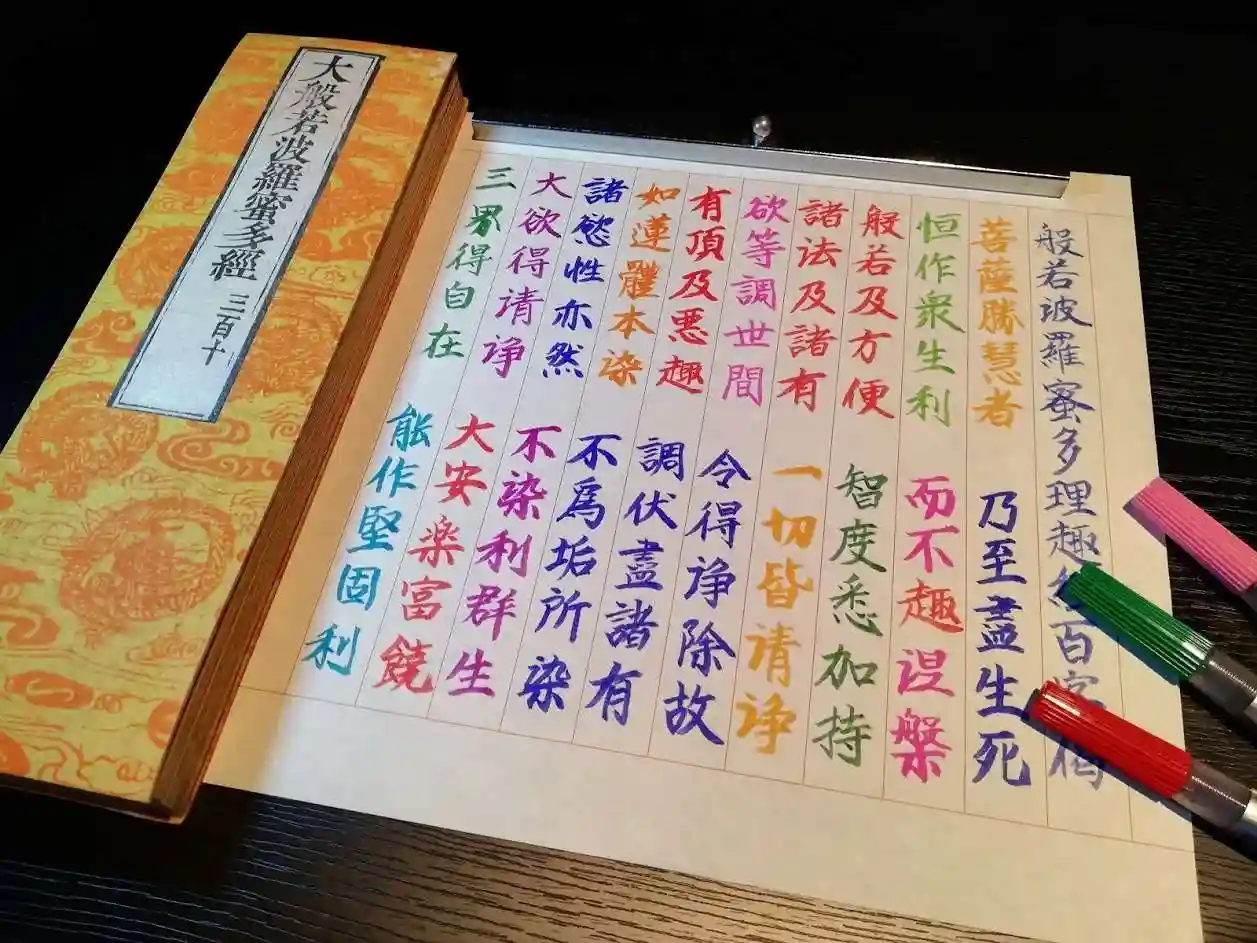 大般若波羅蜜多經 三百十
般若波羅蜜多理趣百字偈
菩薩勝慧者 乃至盡生死
恒作衆生利 而不趣涅槃
般若及方便 智度悉加持
諸法及諸有 一切皆清净
欲等調世間 令得净除故
有頂及悪趣 調伏盡諸有
如蓮體本染 不爲垢所染
諸慾性亦然 不染利群生
大欲得清净 大安楽富饒
三界得自在 能作堅固利